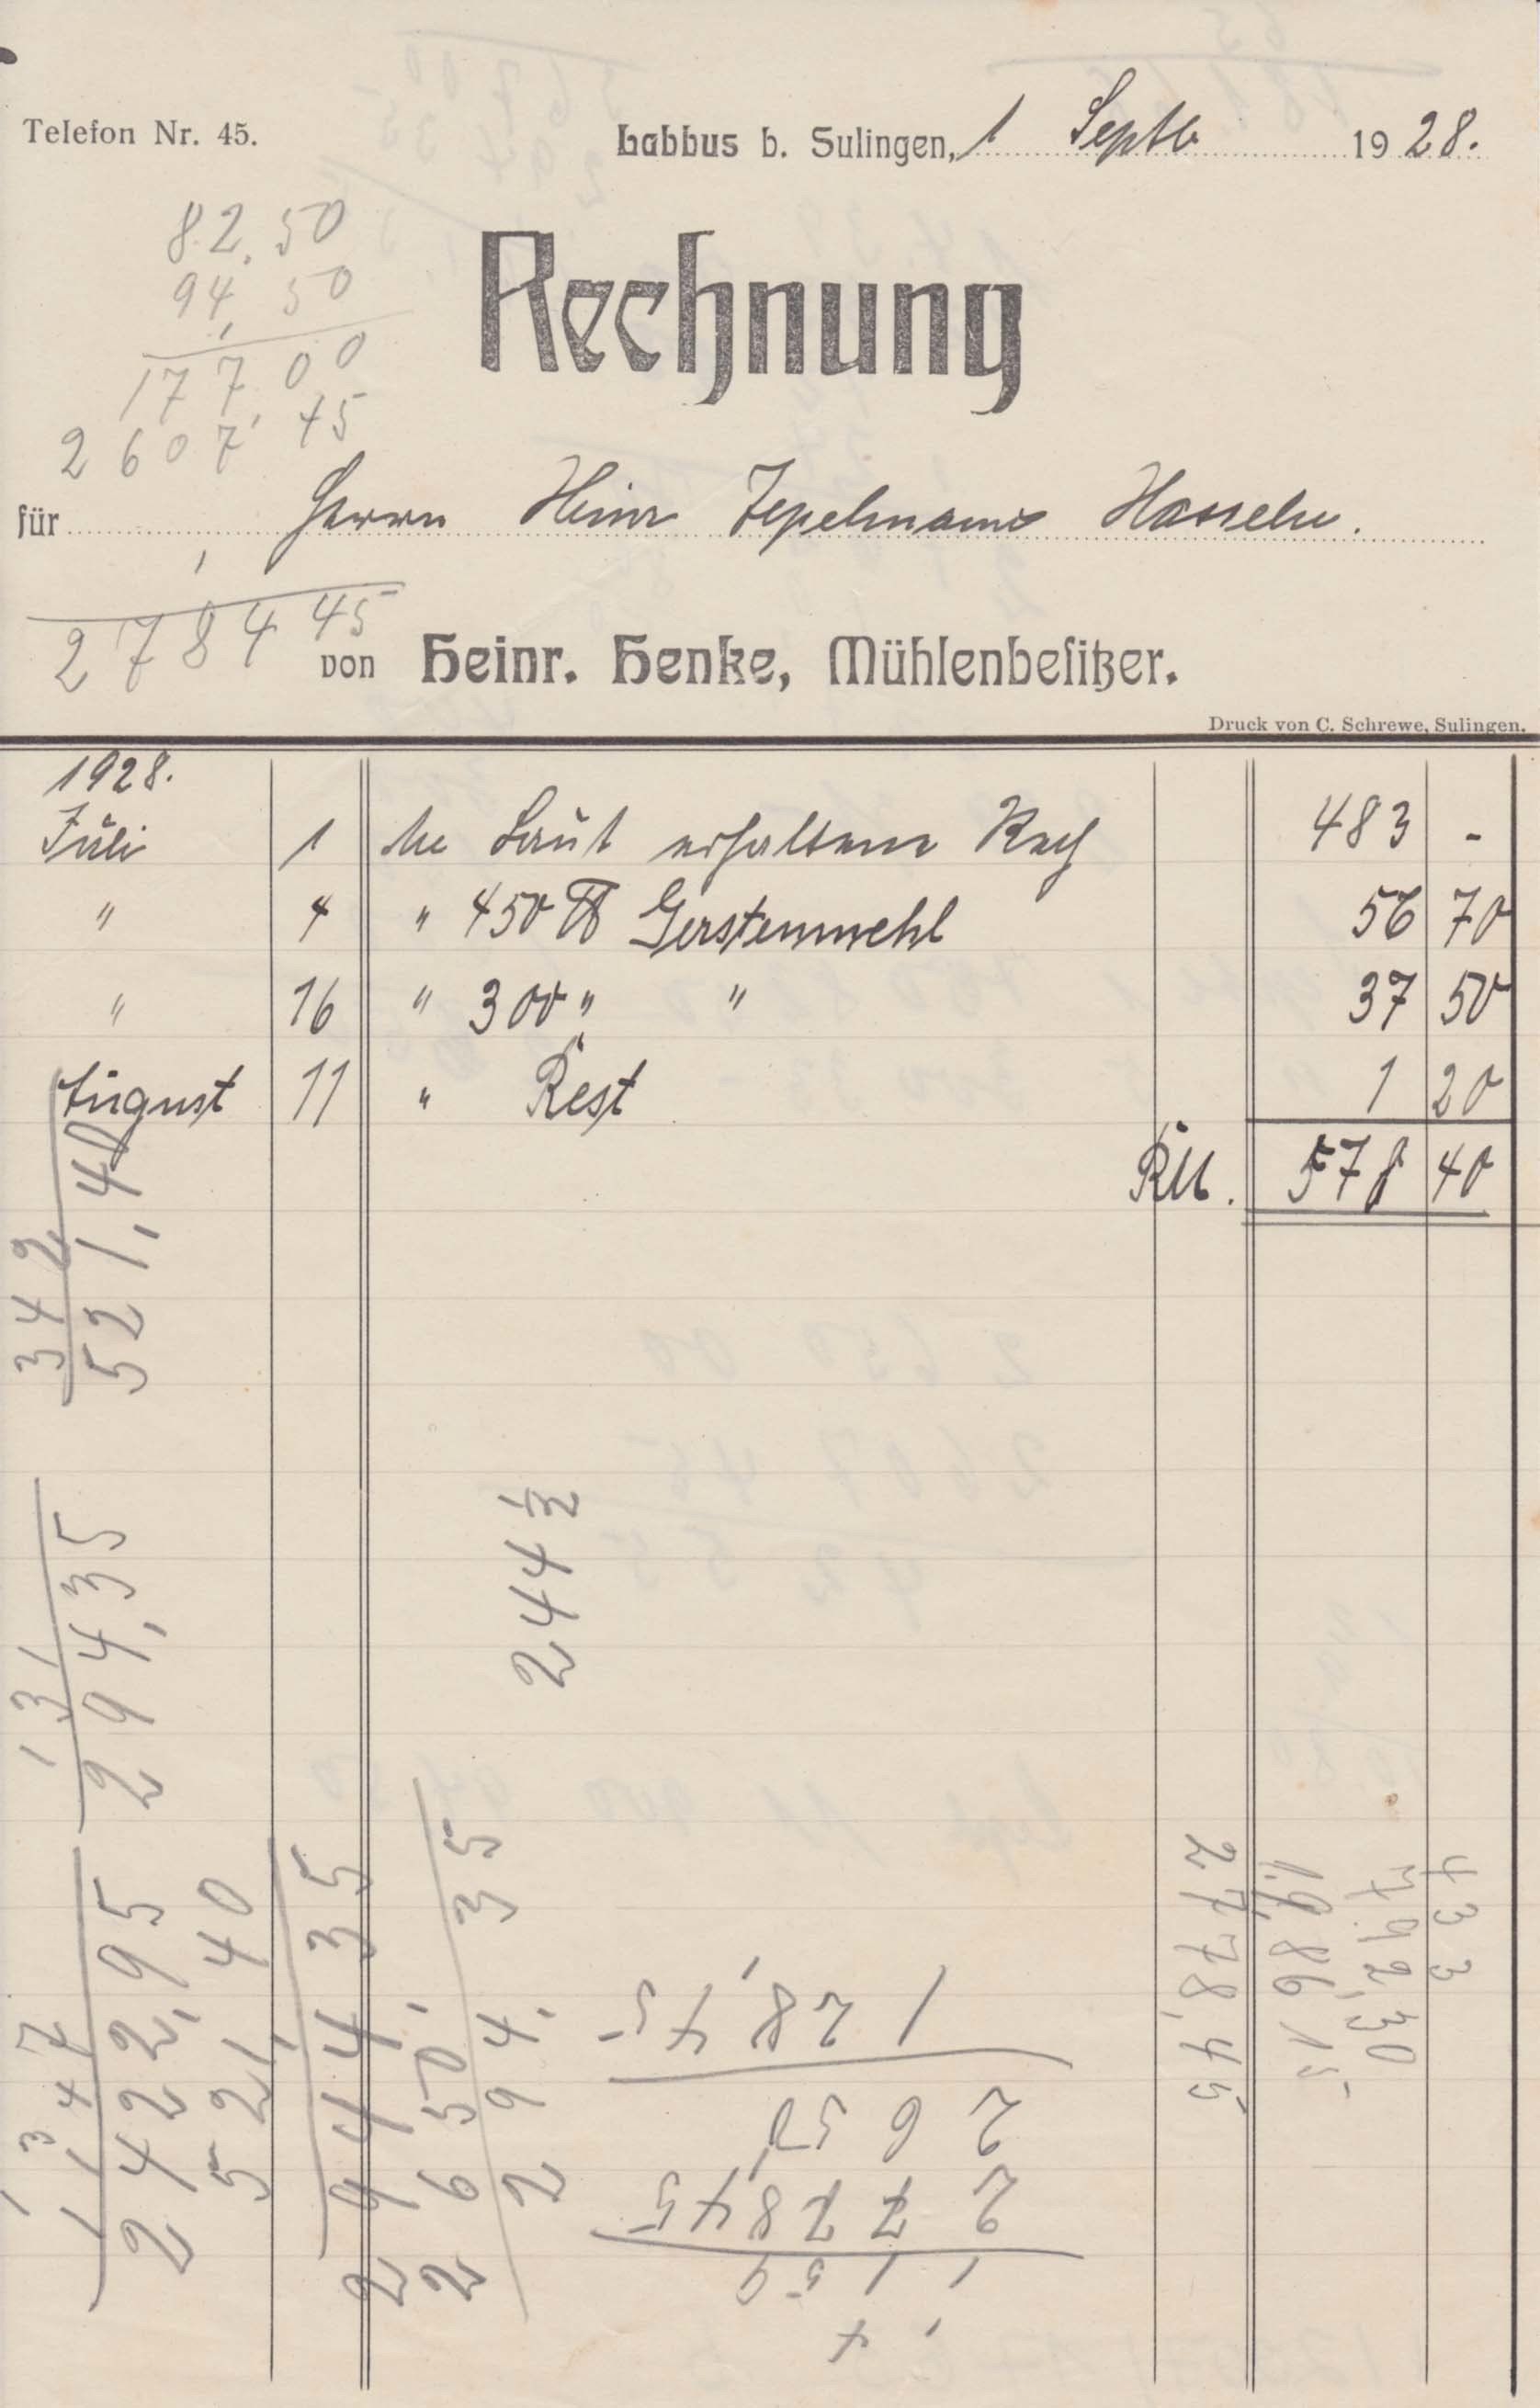 Telefon Nr. 45.
Labbus b. Sulingen, 1 Septb 1928.
82,50
94,50
177,00
2607,45
2784 45
Rechnung
für Herrn Heinr Tepelmann Hasseln.
von Heinr. Henke, Mühlenbesitzer.
Druck von C. Schrewe, Sulingen.
1928.
Juli 1 Laut erhaltener Rech 483 -
" 4 " 450 ℔ Gerstenmehl 56 70
" 16 " 300 " " 37 50
August 11 " Rest 1 20
RM. 578 40
342
521,40
131
294,35
244 ½
2422,95
521,40
2944 35
2650,
294,35
128,45
2650,
2778,45
1159
433
792,30
1986 15
2778,45